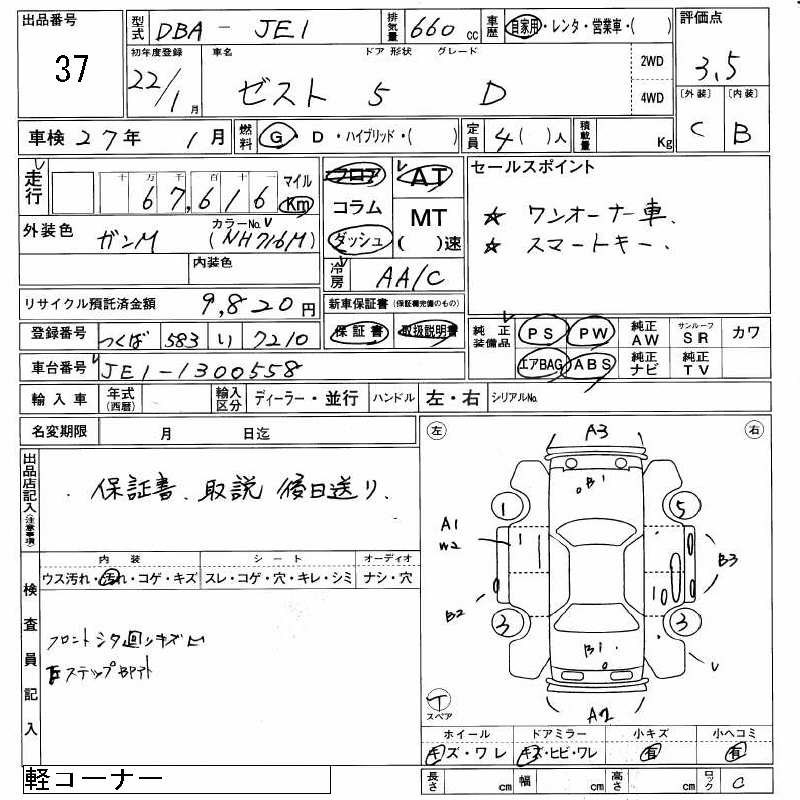 出品番号 37
型式 DBA - JE1 排気量 660 cc 車歴 自家用・レンタ・営業車・( )
評価点 3,5
初年度登録 22/1月 車名 ゼスト ドア 形状 5 グレード D 2WD 4WD
〔外装〕 C 〔内装〕 B
車検 27年 1月 燃料 G・D・ハイブリッド・( ) 定員 4( )人 積載量 Kg
走行 十万千百十 67,616 マイル Km
フロア コラム ダッシュ AT MT ( )速
セールスポイント
☆ ワンオーナー車.
☆ スマートキー.
外装色 ガンM カラーNo. (NH716M)
内装色
冷房 AA/C
リサイクル預託済金額 9,820円
新車保証書 (保証欄完備のもの)
保証書 取扱説明書
登録番号 つくば 583 い 7210
純正装備品 PS PW 純正AW サンルーフSR カワ
エアBAG ABS 純正ナビ 純正TV
車台番号 JE1-1300558
輸入車 年式(西暦) 輸入区分 ディーラー・並行 ハンドル 左・右 シリアルNo.
名変期限 月 日迄
出品店記入(注意事項)
・保証書、取説 後日送り.
内装 シート オーディオ
ウス汚れ・汚れ・コゲ・キズ スレ・コゲ・穴・キレ・シミ ナシ・穴
検査員記入
フロントシタ廻リキズ
左 右
A3
B1
1 5
A1
W2
B3
10
B2
3 3
B1
A2
スペア
ホイール ドアミラー 小キズ 小ヘコミ
キズ・ワレ キズ・ヒビ・ワレ 有 有
軽コーナー
長さ cm 幅 cm 高さ cm ロック C